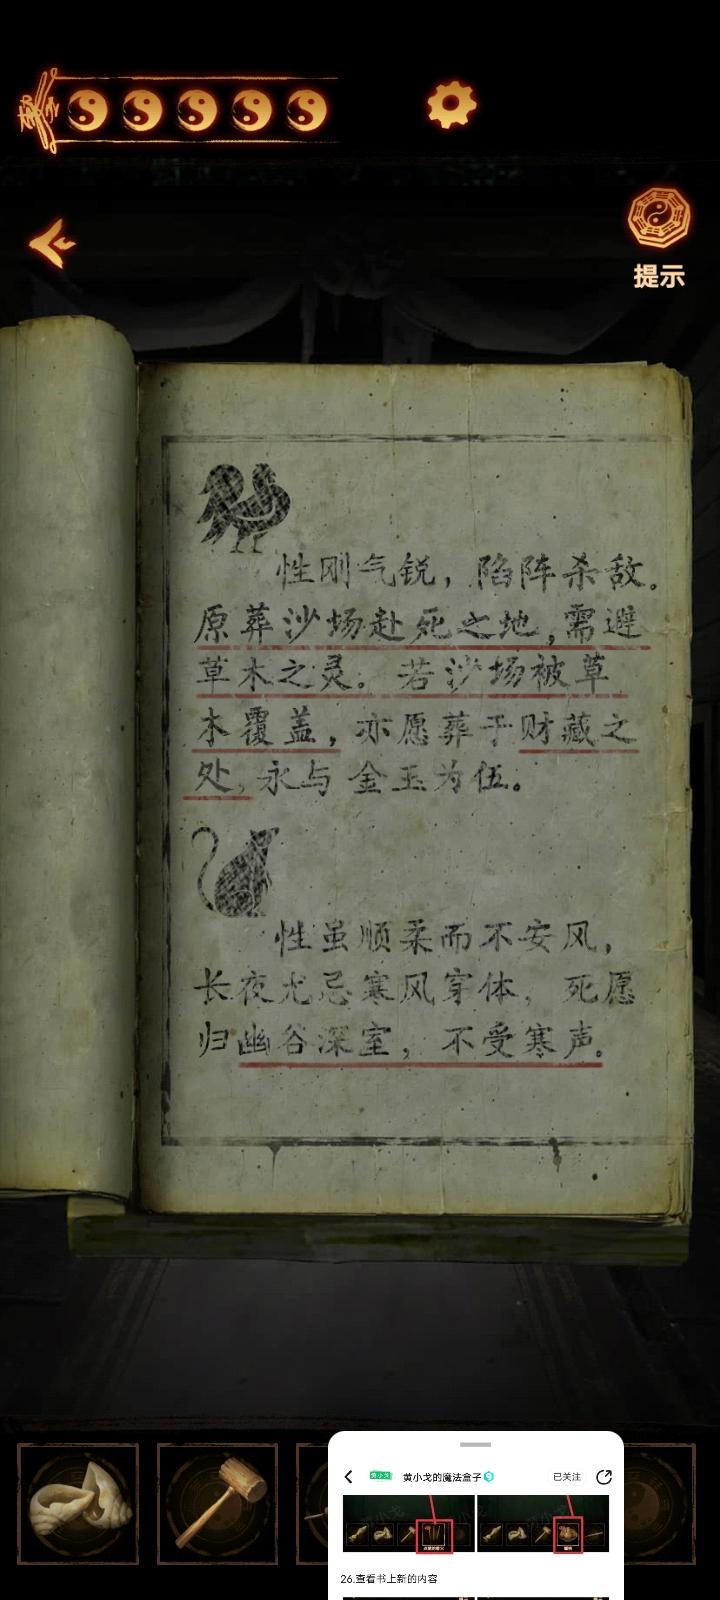 提示
性刚气锐，陷阵杀敌。
原葬沙场赴死之地，需避
草木之灵。若沙场被草
木覆盖，亦愿葬于财藏之
处，永与金玉为伍。
性虽顺柔而不安风，
长夜尤忌寒风穿体，死愿
归幽谷深室，不受寒声。
黄小戈的魔法盒子
已关注
26.查看书上新的内容